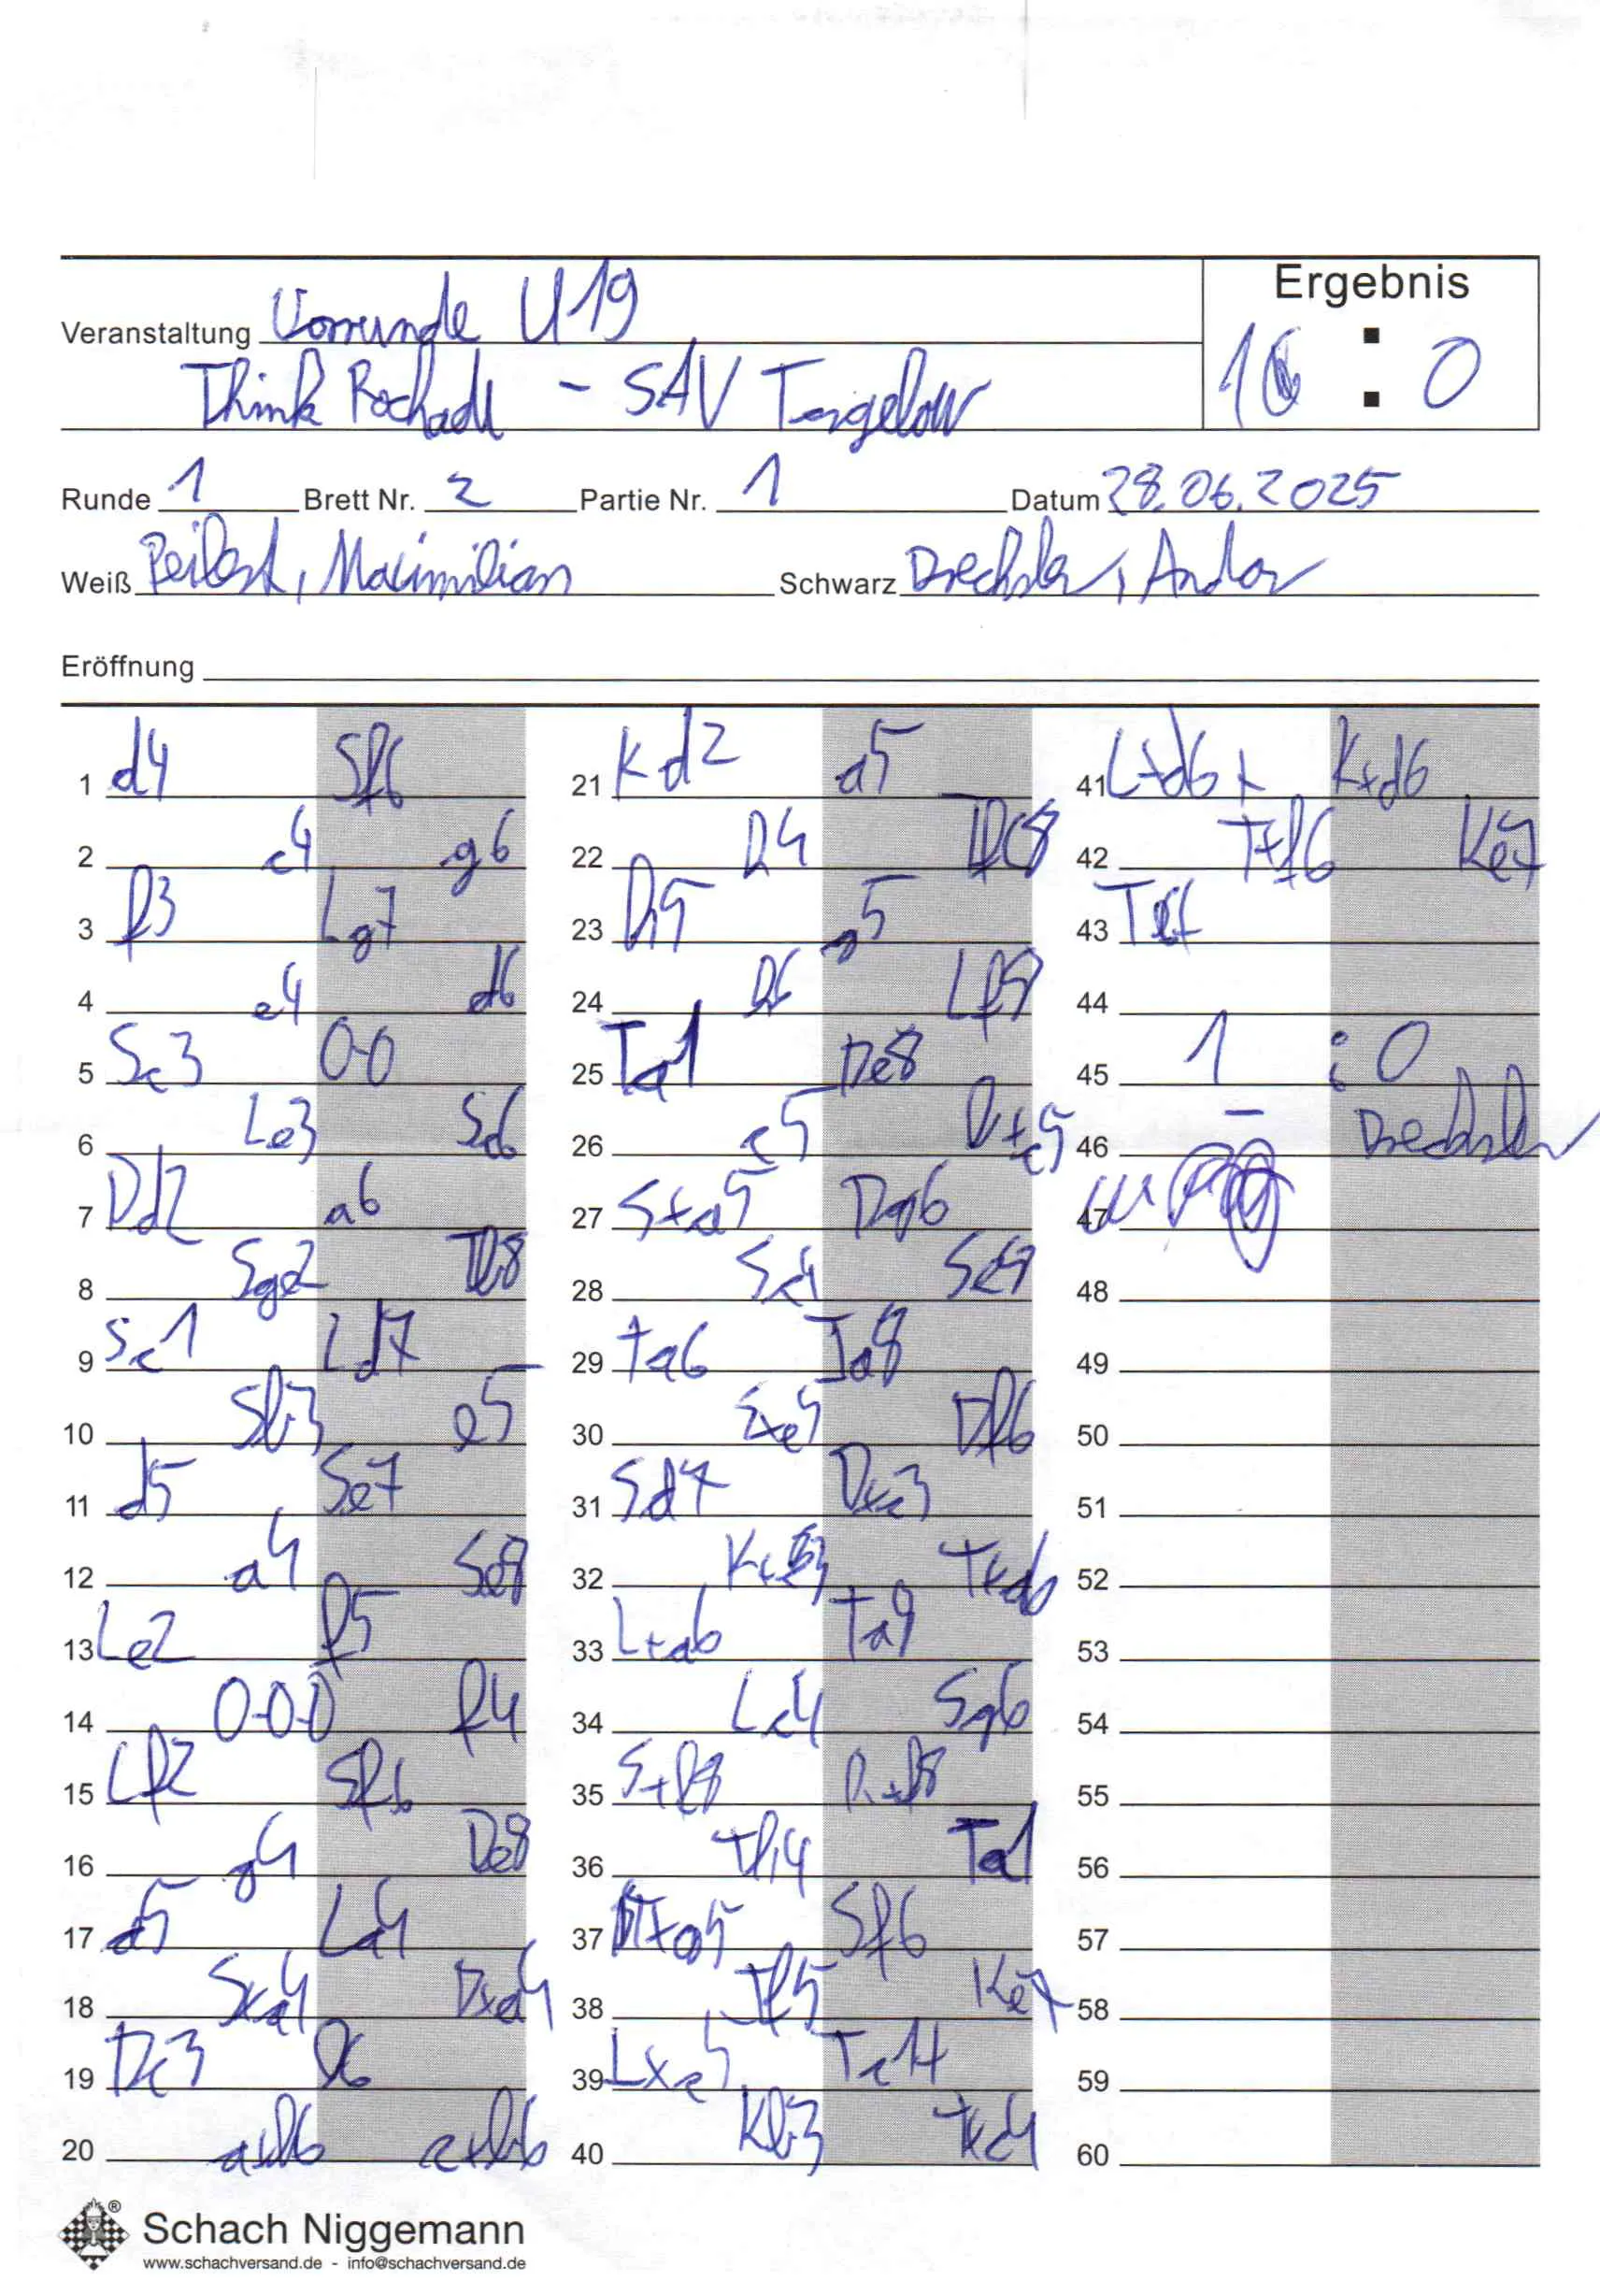 Ergebnis
Veranstaltung Vorrunde U19
Think Rochade - SAV Torgelow
1 : 0
Runde 1 Brett Nr. 2 Partie Nr. 1 Datum 28.06.2025
Weiß Maximilian Schwarz Drechsler, Andor
Eröffnung
1 d4 Sf6
2 c4 g6
3 f3 Lg7
4 e4 d6
5 Sc3 0-0
6 Le3 Sc6
7 Dd2 a6
8 Sge2 Tb8
9 Sc1 Ld7
10 Sb3 e5
11 d5 Se7
12 a4 Se8
13 Le2 f5
14 0-0-0 f4
15 Lf2 Sf6
16 g4 De8
17 a5 La4
18 Sxa4 Dxa4
19 Dc3 b6
20 axb6 cxb6
21 Kd2 a5
22 h4 Tfc8
23 h5 g5
24 h6 Lf8
25 Ta1 De8
26 c5 bxc5
27 Sxa5 Dg6
28 Sc4
29 Ta6 Ta8
30 Sxe5 Df6
31 Sd7 Dxc3
32 Txa6
33 Lxa6
34 Lc4 Sg6
35 Sxf8
36 Th4 Ta1
37 Sf6
38 Tf5 Ke7
39 Lxc5 Tc1+
40 Kb3 Txc4
41 Lxd6+ Kxd6
42 Txf6 Ke7
43
44
45 1 : 0
46 Drechsler
47
48
49
50
51
52
53
54
55
56
57
58
59
60
Schach Niggemann
www.schachversand.de - info@schachversand.de